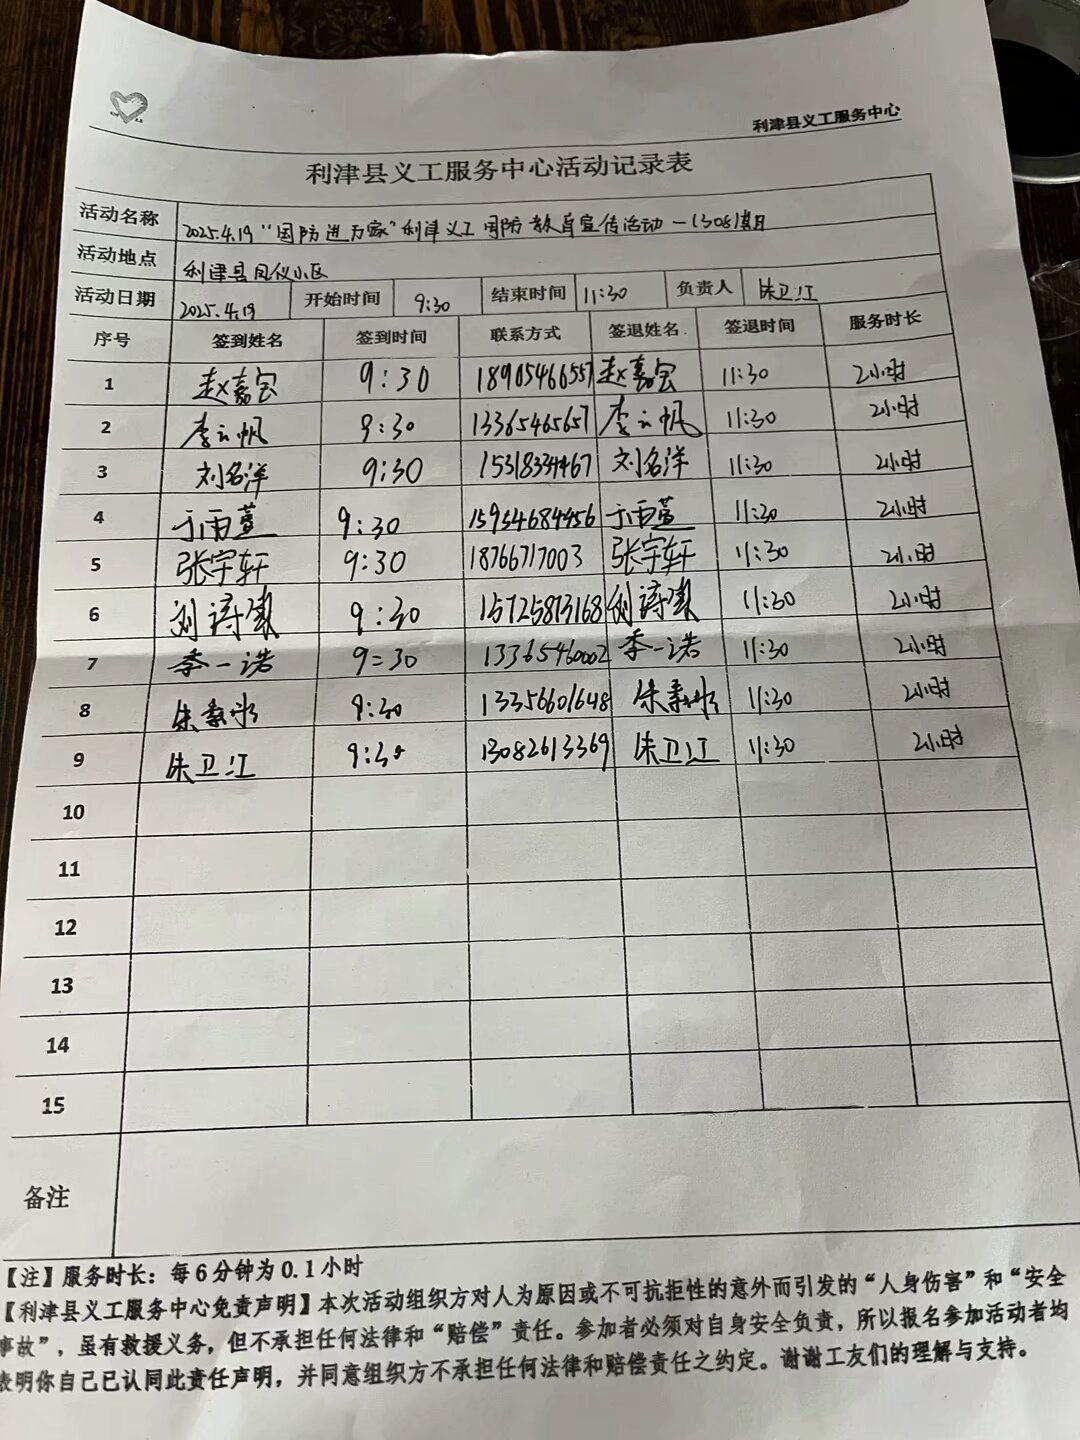 利津县义工服务中心
利津县义工服务中心活动记录表
活动名称 2025.4.19“国防进万家”利津义工国防教育宣传活动—1308期
活动地点 利津县凤仪小区
活动日期 2025.4.19 开始时间 9:30 结束时间 11:30 负责人 朱卫江
序号 签到姓名 签到时间 联系方式 签退姓名 签退时间 服务时长
1 赵嘉宝 9:30 18905466557 赵嘉宝 11:30 2小时
2 李云帆 9:30 13365465657 李云帆 11:30 2小时
3 刘名洋 9:30 15318334467 刘名洋 11:30 2小时
4 于雨萱 9:30 15954684456 于雨萱 11:30 2小时
5 张宇轩 9:30 18766717003 张宇轩 11:30 2小时
6 刘诗 9:30 15725813168 刘诗 11:30 2小时
7 李一诺 9:30 13365460002 李一诺 11:30 2小时
8 朱 9:30 13356601648 朱 11:30 2小时
9 朱卫江 9:30 13082613369 朱卫江 11:30 2小时
10
11
12
13
14
15
备注
【注】服务时长：每6分钟为0.1小时
【利津县义工服务中心免责声明】本次活动组织方对人为原因或不可抗拒性的意外而引发的“人身伤害”和“安全
事故”，虽有救援义务，但不承担任何法律和“赔偿”责任。参加者必须对自身安全负责，所以报名参加活动者均
表明你自己已认同此责任声明，并同意组织方不承担任何法律和赔偿责任之约定。谢谢工友们的理解与支持。